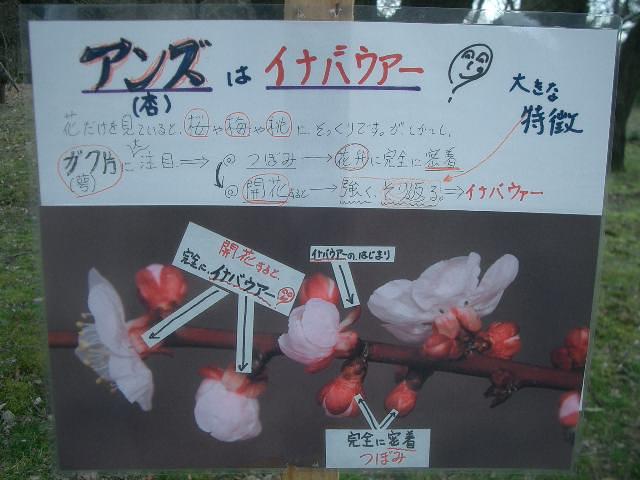 アンズ は イナバウアー
(杏)
大きな
特徴
花だけを見ていると、桜や梅や桃にそっくりです。が、しかし、
ガク片に注目 ⟹ @ つぼみ → 花弁に完全に密着
(萼)
@ 開花すると → 強く、そり返る。⟹ イナバウアー
開花すると、
完全に、イナバウアー
イナバウアーの、はじまり
完全に密着
つぼみ